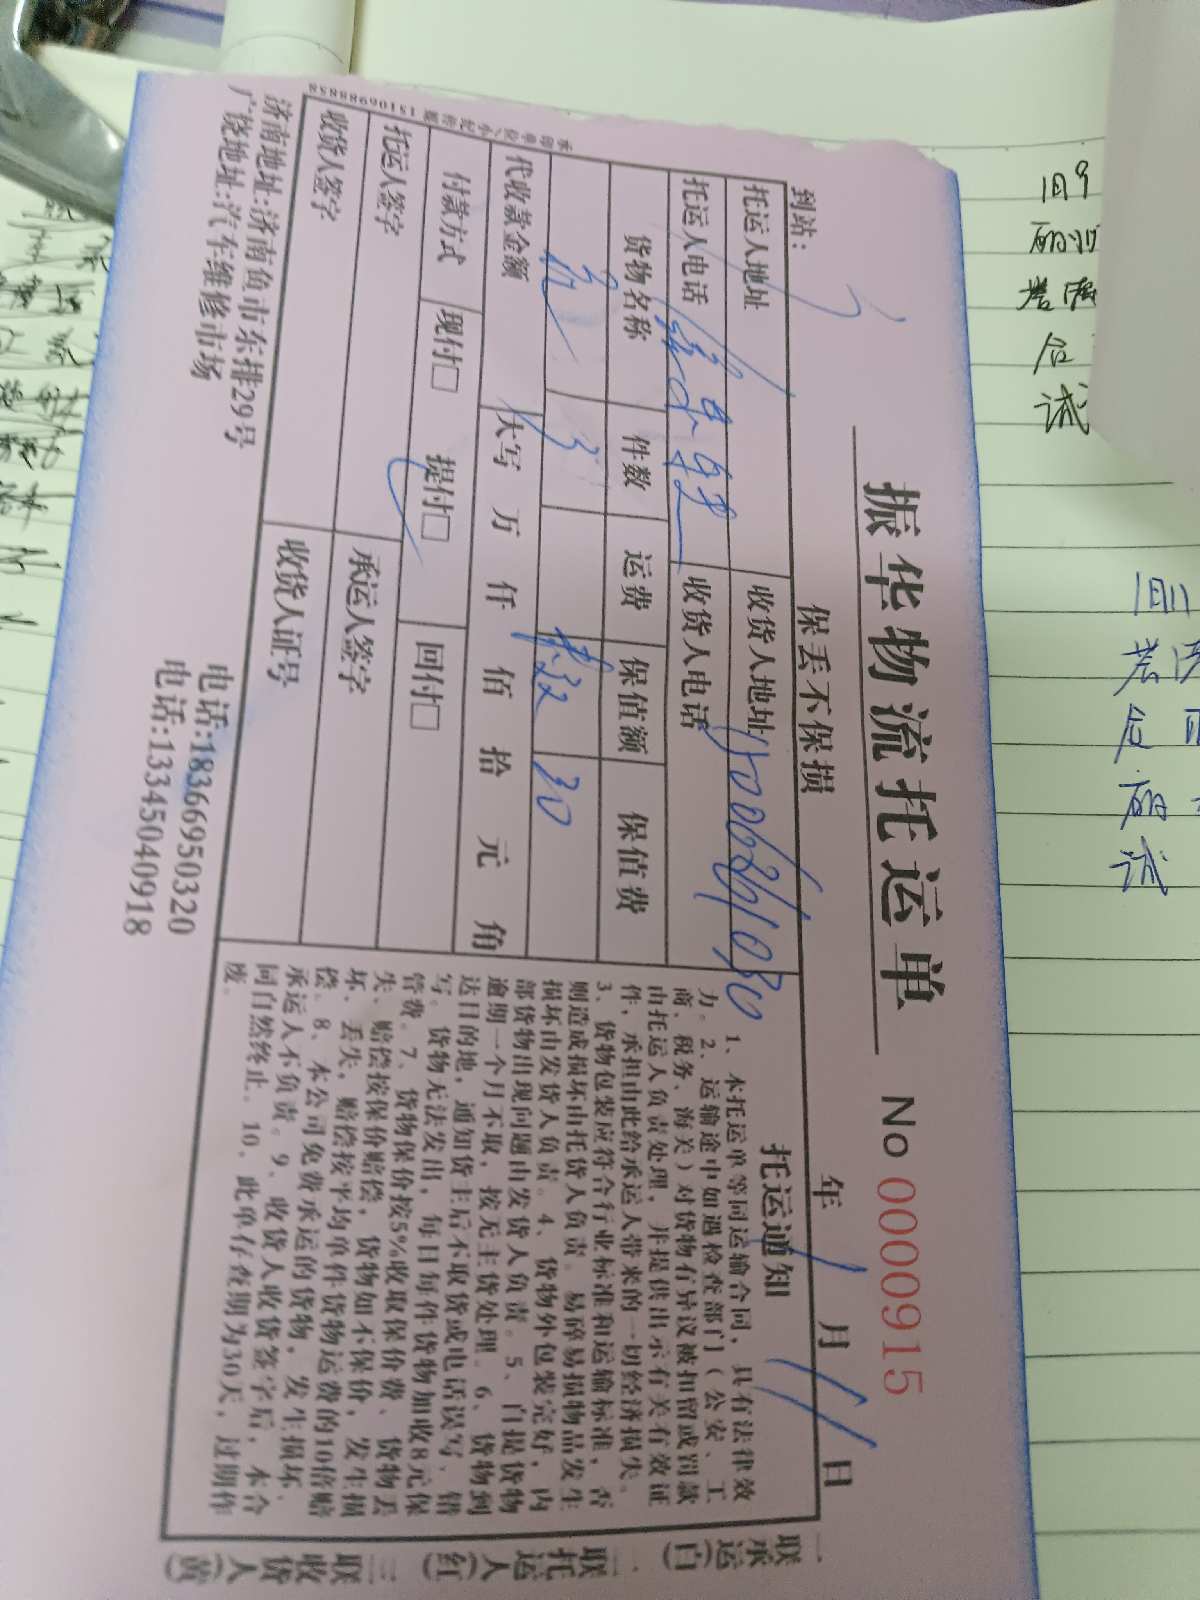 振华物流托运单 No 0000915
保丢不保损
到站: 年 1 月 11 日
托运人地址 收货人地址
托运人电话 收货人电话
货物名称 件数 运费 保值额 保值费
3 30
代收款金额 大写 万 仟 佰 拾 元 角
付款方式 现付□ 提付□ 回付□
托运人签字 承运人签字
收货人签字 收货人证号
济南地址:济南鱼市东排29号 电话:18366950320
广饶地址:汽车维修市场 电话:13345040918
托运通知
1、本托运单等同运输合同，具有法律效
力。2、运输途中如遇检查部门（公安、工
商、税务、海关）对货物有异议被扣留或罚款
由托运人负责处理，并提供出示有关有效证
件，承担由此给承运人带来的一切经济损失。
3、货物包装应符合行业标准和运输标准，否
则造成损坏由托货人负责。易碎易损物品发生
损坏由发货人负责。4、货物外包装完好，内
部货物出现问题由发货人负责。5、自提货物
逾期一个月不取，按无主货处理。6、货物到
达目的地，通知货主后不取货或电话误写、错
写、货物无法发出，每日每件货物加收8元保
管费。7、货物保价按5%收取保价费、货物丢
失、赔偿按保价赔偿，货物如不保价，发生损
坏、丢失，赔偿按平均单件货物运费的10倍赔
偿。8、本公司免费承运的货物，发生损坏，
承运人不负责。9、收货人收货签字后，本合
同自然终止。10、此单存查期为30天，过期作
废。
一联承运(白)
二联托运人(红)
三联收货人(黄)